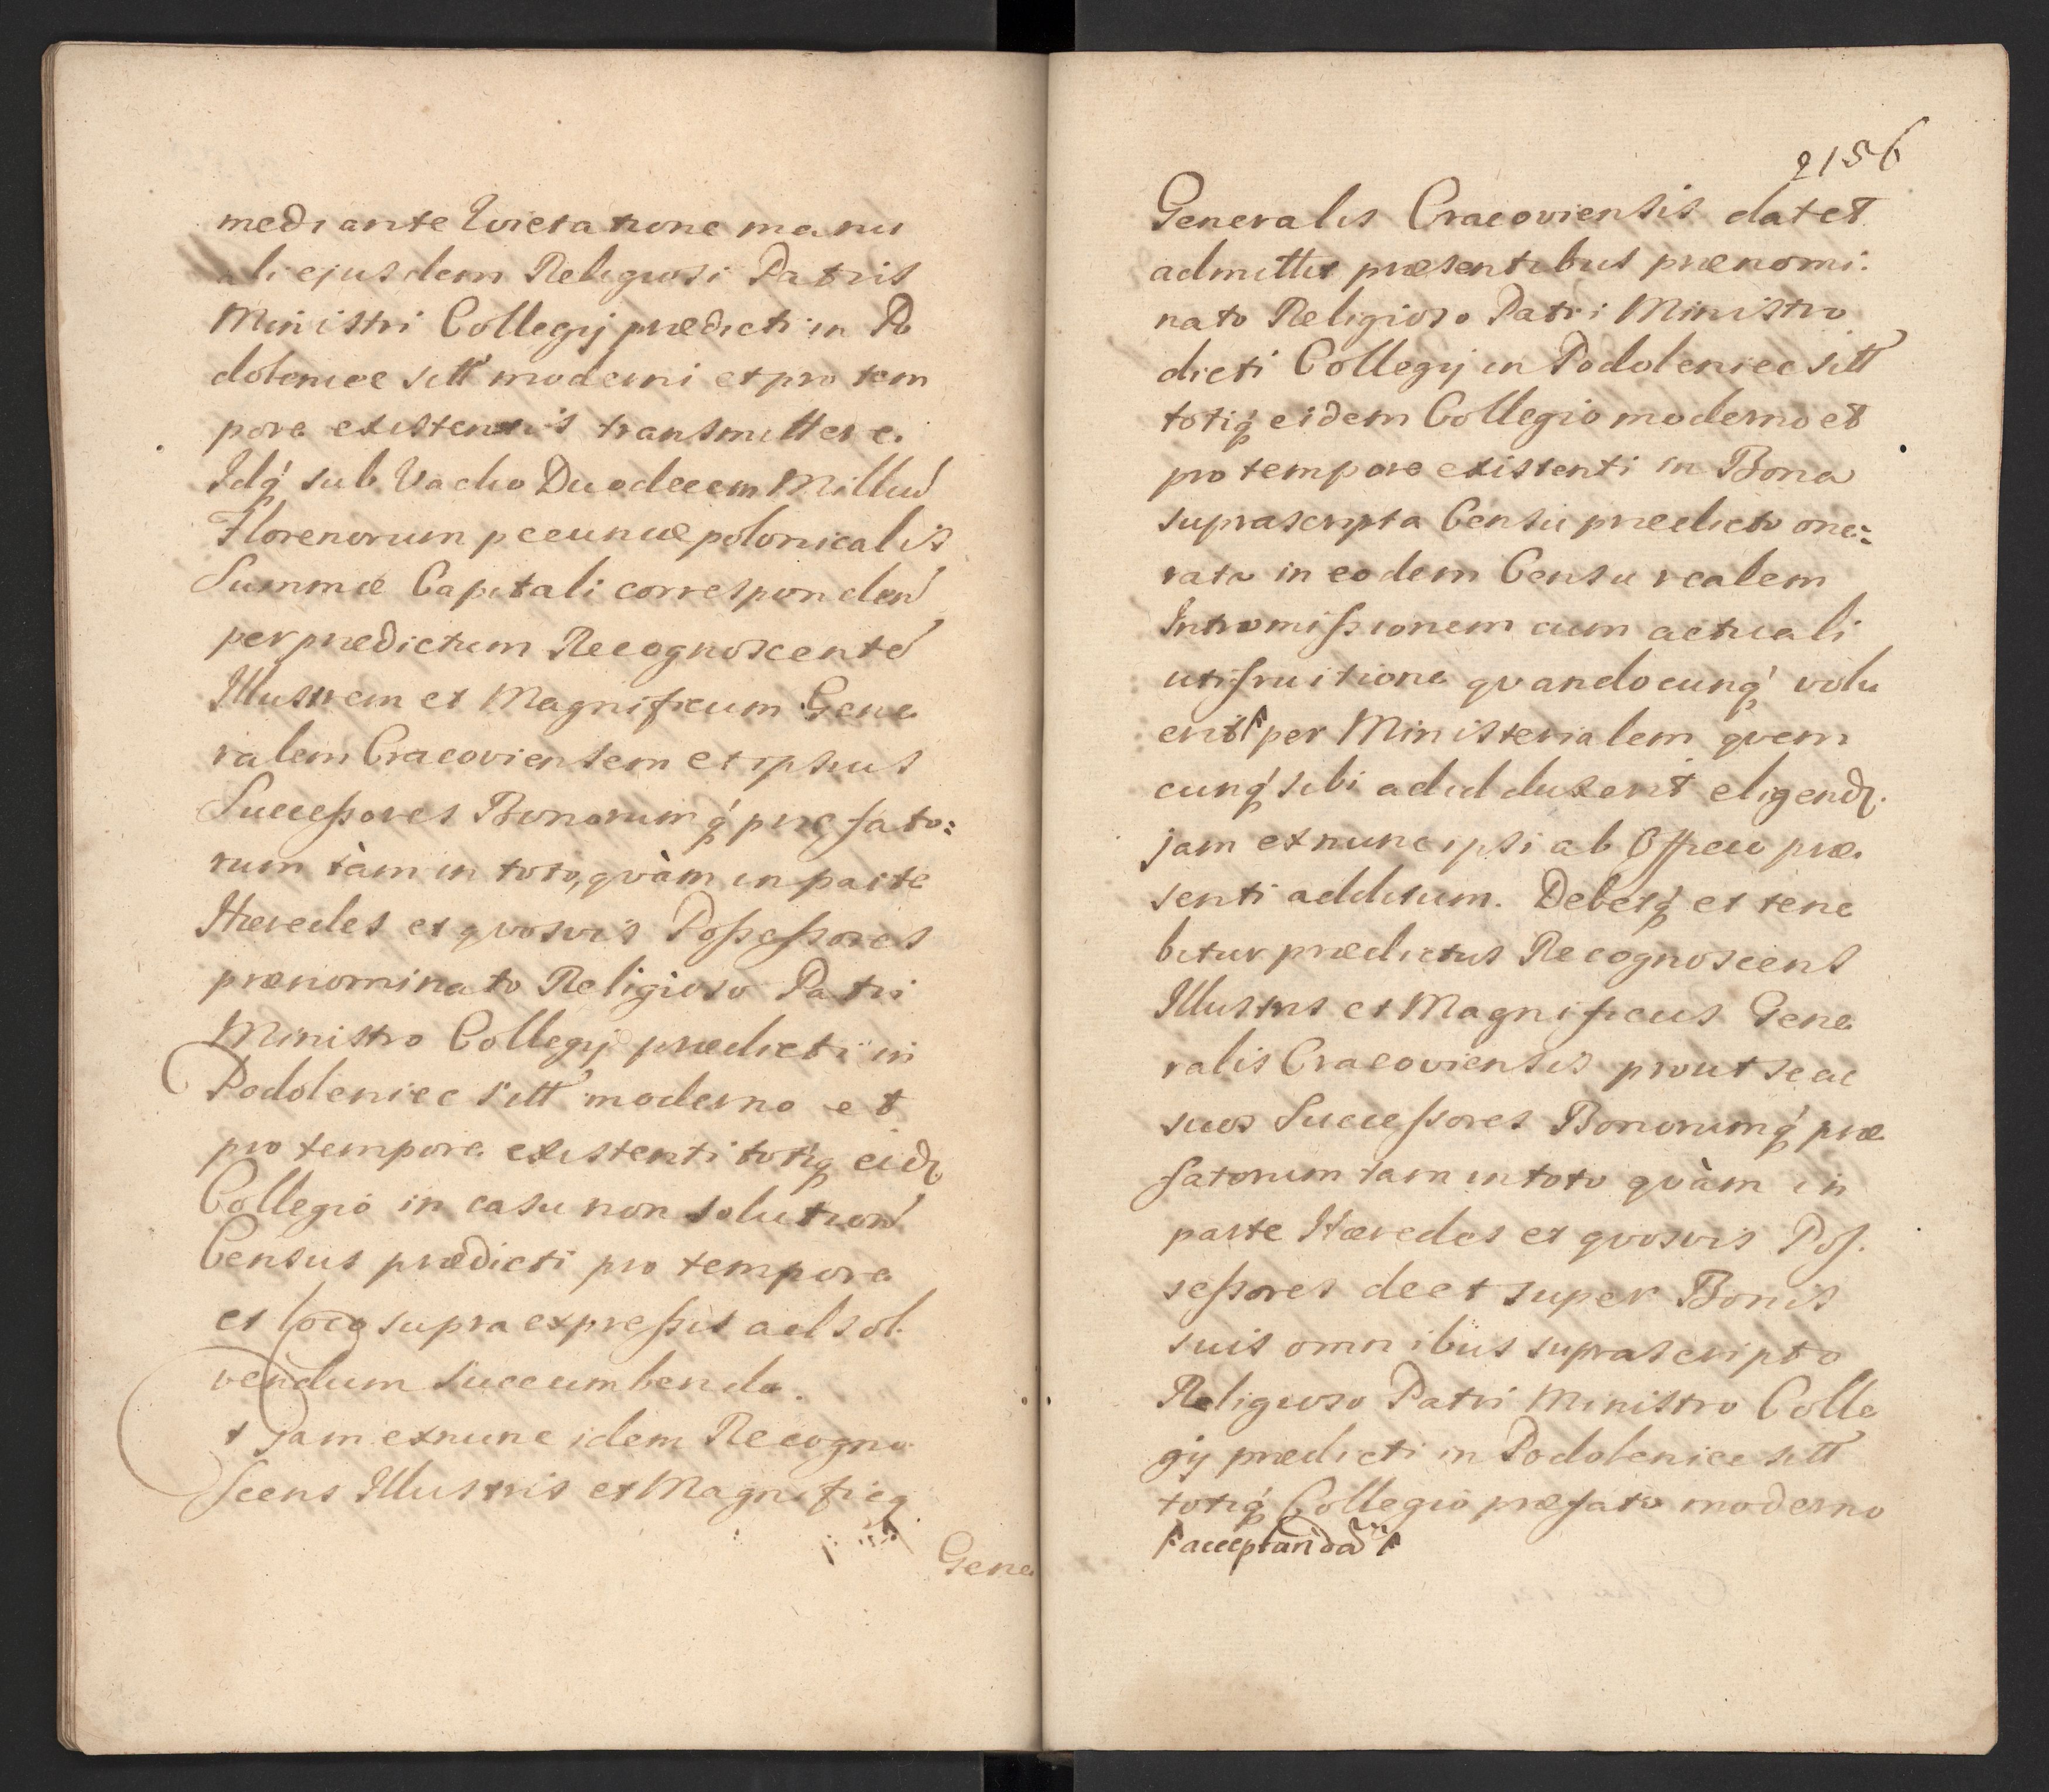 mediante Qvietatione manu
ali ejusdem Religiosi Patris
Ministri Collegij prædicti in Po
doleniec sitt moderni et pro tem
pore existentis transmittere.
Idq́ sub Vadio Duodecem Milliū
Florenorum pecuniæ polonicalis
Summæ Capitali corresponden̄
per prædictum Recognoscentē
Illustrem et Magnificum Gene
ralem Cracoviensem et ipsius
Successores Bonorumq́ præfato:
rum tàm in toto, qvàm in parte
Hæredes et qvosvis Possessores
prænominato Religioso Patri
Ministro Collegij prædicti in
Podoleniec sitt moderno et
pro tempore existenti totiq́ eidꝫ
Collegio in casu non solution̄
Census prædicti pro tempore
et loco supra expressis ad sol
vendum succumbendo.
+ Jam exnunc idem Recogno
scens Illustris et Magnificq
Gene
2156
Generalis Cracoviensis dat et
admittit præsentibus prænomi:
nato Religioso Patri Ministro
dicti Collegij in Podoleniec sitt
totiq́ eidem Collegio moderno et
pro tempore existenti in Bona
suprascripta Censu prædicto one:
rata in eodem Censu realem
Intromissionem cum actuali
utifruitione qvandocunq́ volu
erit per Ministerialem qvem
cunq́ sibi ad id duxerit eligendꝫ.
jam exnunc ipsi ab Officio præ
senti additum. Debetq́ et tene
bitur prædictus Recognoscens
Illustris et Magnificus Gene
ralis Cracoviensis prout se ac
suos Successores Bonorumq́ præ
fatorum tam in toto qvàm in
parte Hæredes et qvosvis Pos.
sessores de et super Bonis
suis omnibus suprascripto
Religioso Patri Ministro Colle
gij prædicti in Podoleniec sitt
totiq́ Collegio præfato moderno
acceptandā